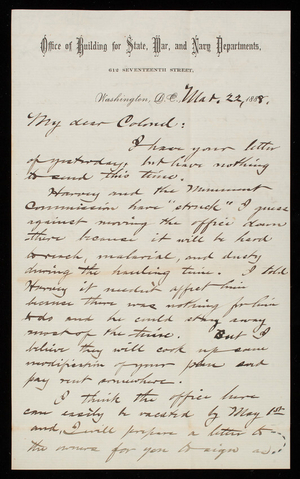 Office of Building for State, War, and Navy Departments,
612 SEVENTEENTH STREET,
Washington, D.C., Mar. 22, 1888.
My dear Colonel:
I have your letter
of yesterday, but have nothing
to send this time.
Harvey and the Monument
Commission have "struck" I guess
against moving the office down
there because it will be hard
to reach, malarial, and dusty
during the hauling time. I told
Harvey it needn't affect him
because there was nothing for him
to do and he could stay away
most of the time. But I
believe they will cook up some
modification of your plan and
pay rent somewhere.
I think the office here
can easily be vacated by May 1st
and I will prepare a letter to
the owners for you to sign as